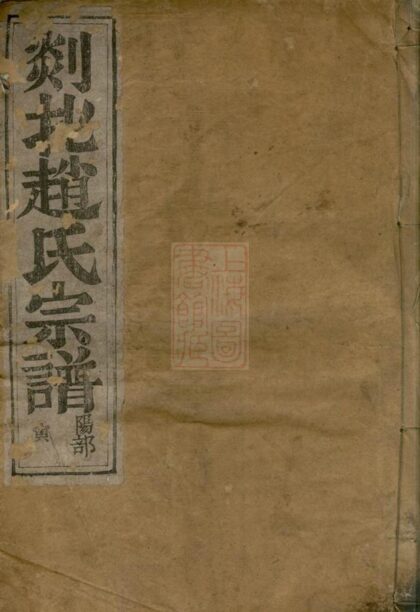 剡北趙氏宗譜
陽部
寅
上海圖
書館藏